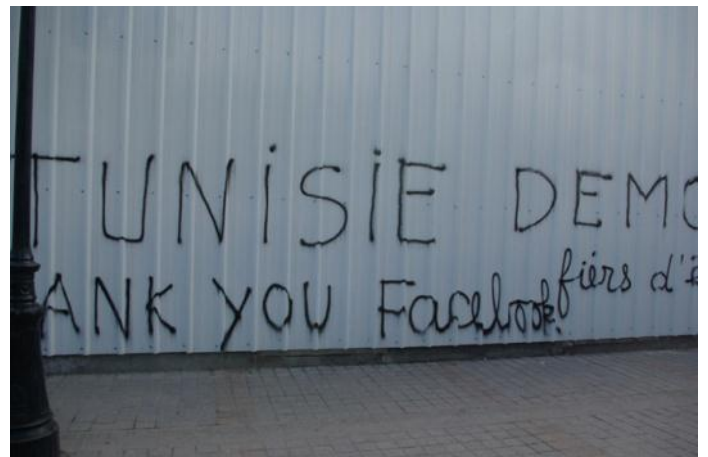 TUNISIE DEMO
ANK YOU Facebook! fiers d'ê